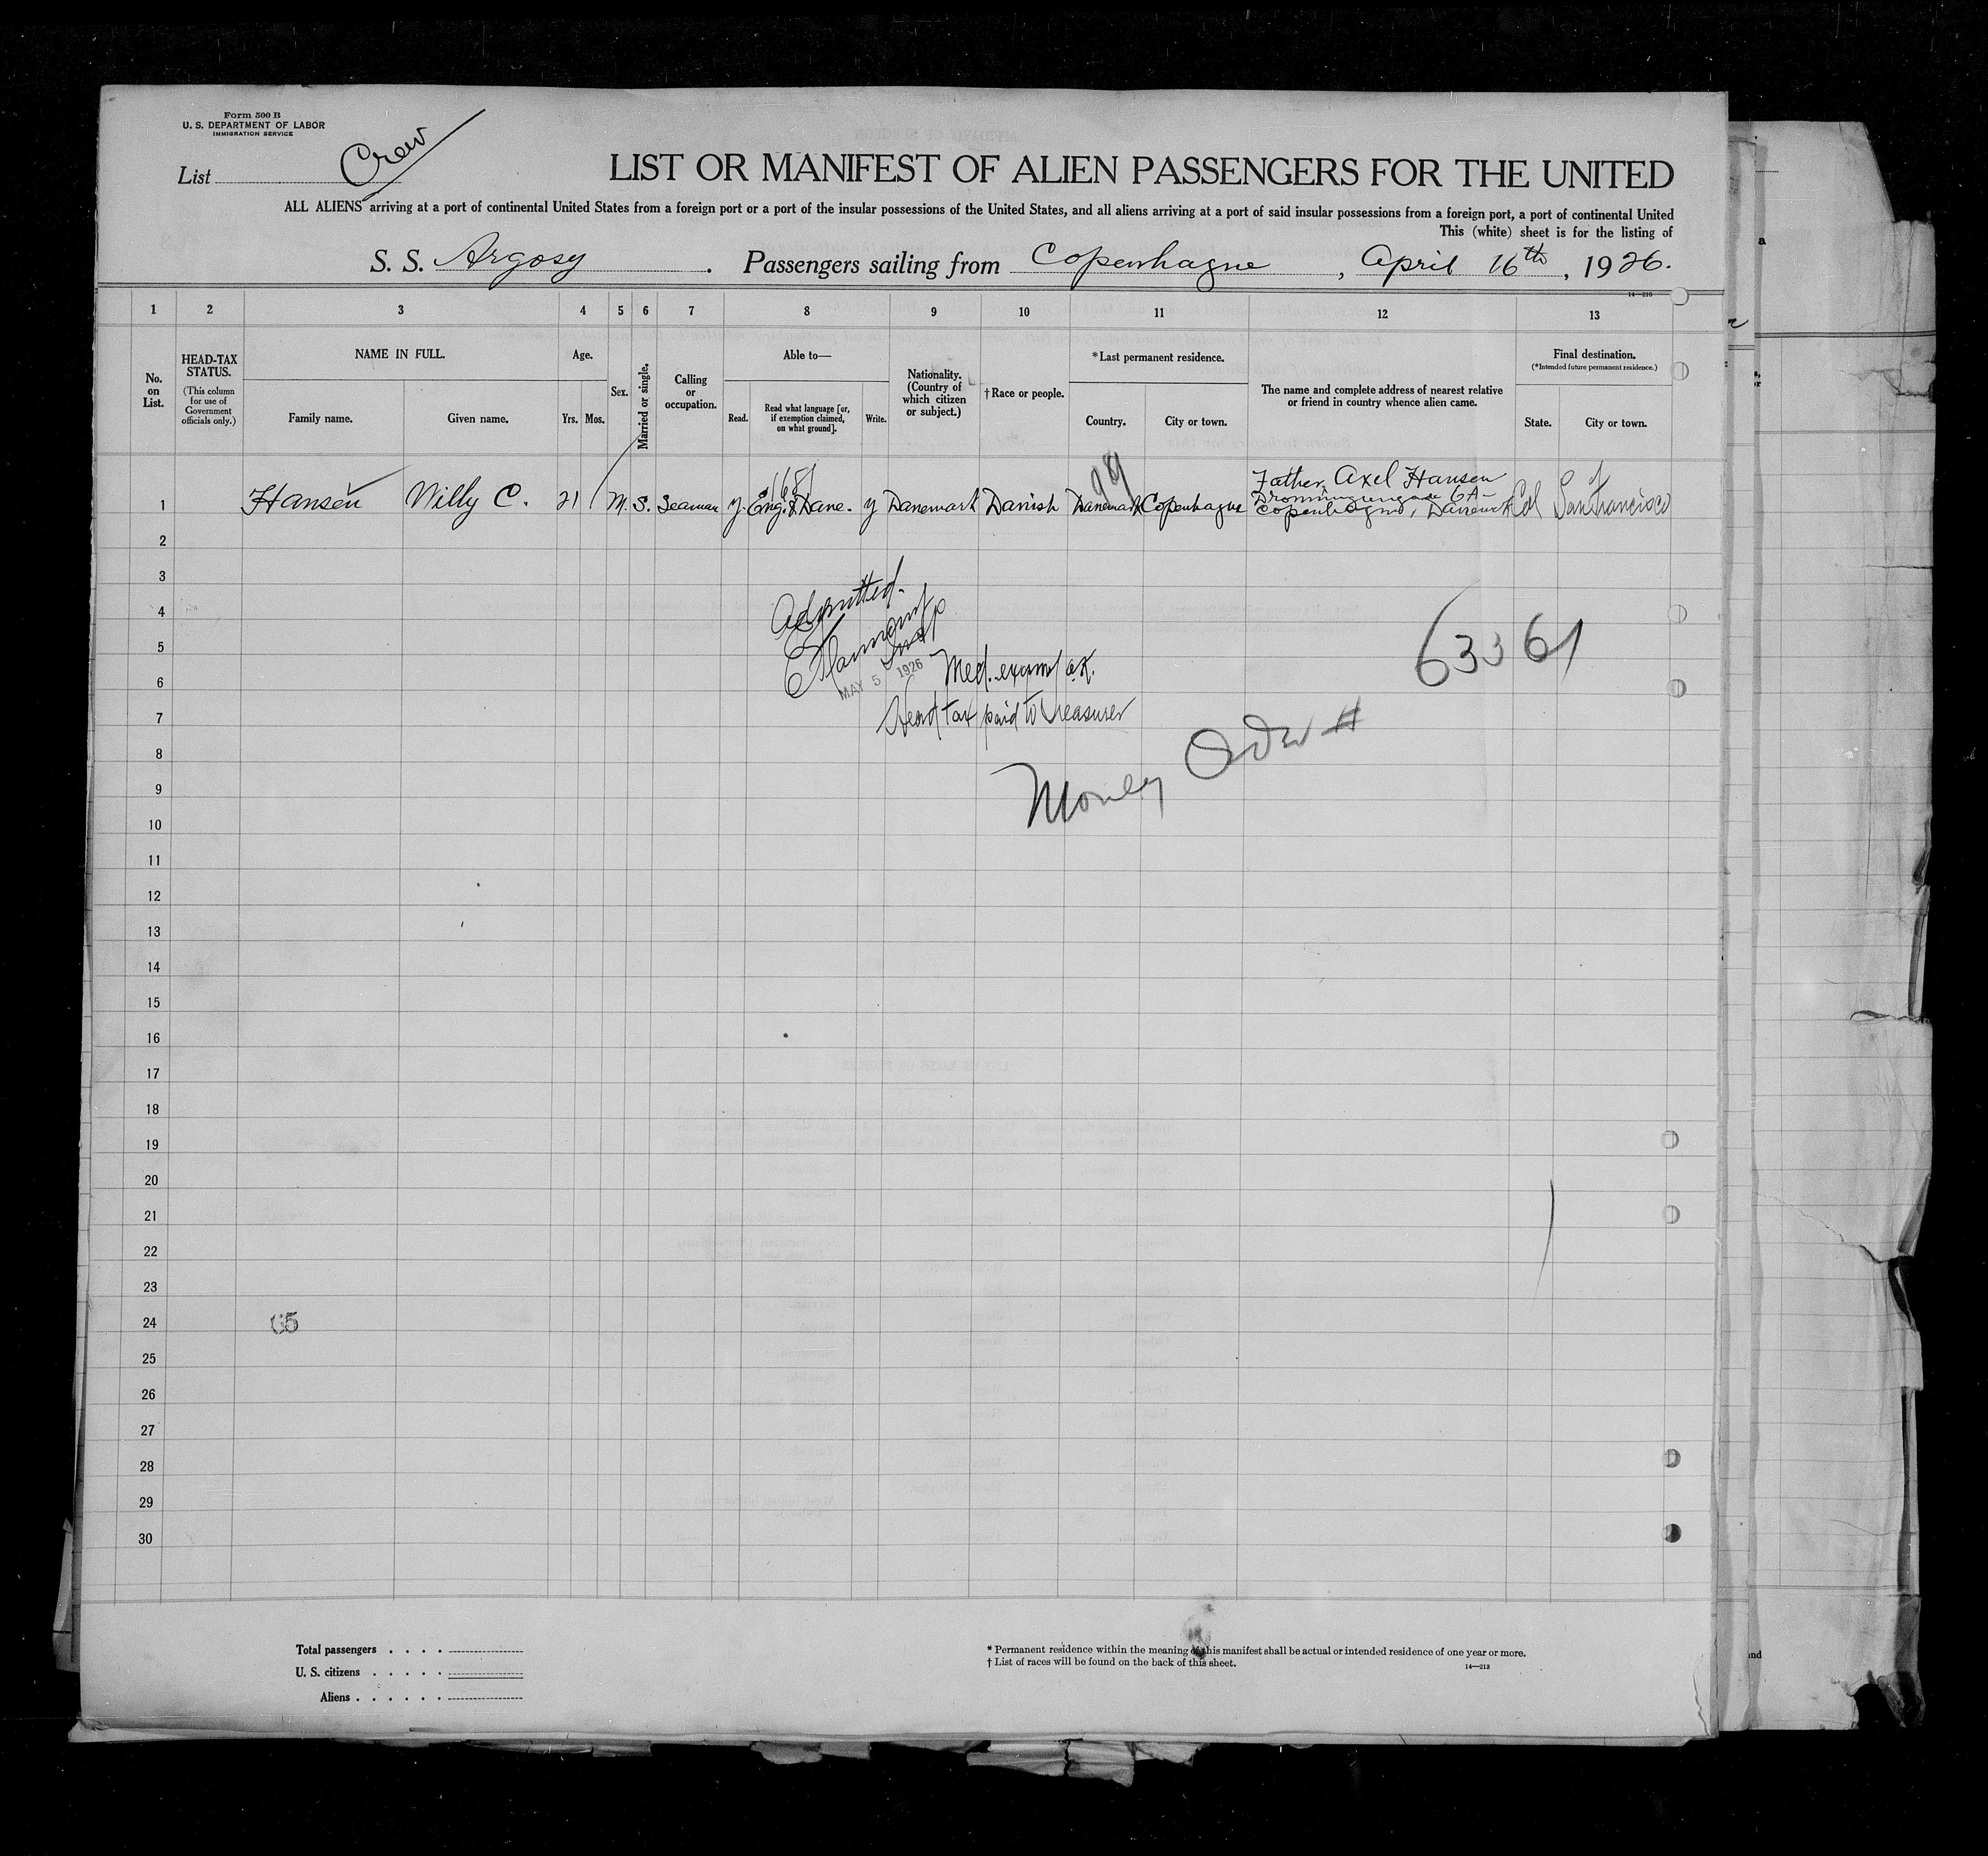 Form 500 B
U. S. DEPARTMENT OF LABOR
IMMIGRATION SERVICE
List Crew
LIST OR MANIFEST OF ALIEN PASSENGERS FOR THE UNITED
ALL ALIENS arriving at a port of continental United States from a foreign port or a port of the insular possessions of the United States, and all aliens arriving at a port of said insular possessions from a foreign port, a port of continental United
This (white) sheet is for the listing of
S. S. Argosy. Passengers sailing from Copenhagne, April 16th, 1926.
14—213
1 2 3 4 5 6 7 8 9 10 11 12 13
No. on List.
HEAD-TAX STATUS.
(This column for use of Government officials only.)
NAME IN FULL.
Family name.
Given name.
Age.
Yrs. Mos.
Sex.
Married or single.
Calling or occupation.
Able to—
Read.
Read what language [or, if exemption claimed, on what ground].
Write.
Nationality. (Country of which citizen or subject.)
† Race or people.
* Last permanent residence.
Country.
City or town.
The name and complete address of nearest relative or friend in country whence alien came.
Final destination.
(*Intended future permanent residence.)
State.
City or town.
99
Father, Axel Hansen
1 Hansen Willy C. 21 M. S. Seaman y. Eng. & Dane. y Danemark Danish Danemark Copenhague Cal San Francisco
6A-
2
3
4
5
6
7
8
9
10
11
12
13
14
15
16
17
18
19
20
21
22
23
24
25
26
27
28
29
30
Admitted.
Insp
MAY 5 1926
Med. exam/ o.k.
Head tax paid to Treasurer
Money Order #
63361
65
Total passengers
U. S. citizens
Aliens
* Permanent residence within the meaning of this manifest shall be actual or intended residence of one year or more.
† List of races will be found on the back of this sheet.
14—213